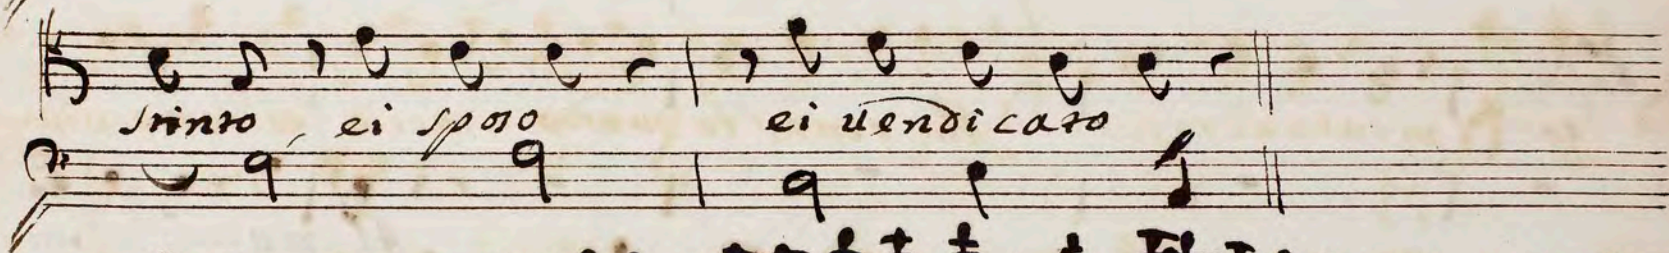 stinto ei sposo ei uendicato